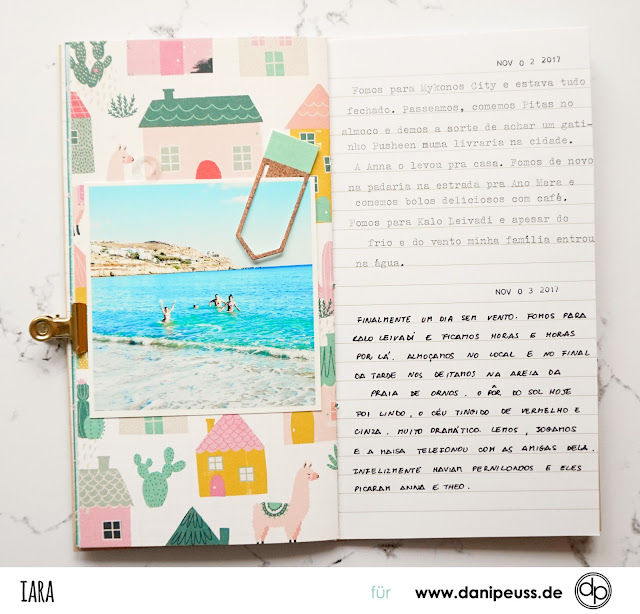 NOV 0 2 2017
Fomos para Mykonos City e estava tudo
fechado. Passeamos, comemos Pitas no
almoco e demos a sorte de achar um gati-
nho Pusheen numa livraria na cidade.
A Anna o levou pra casa. Fomos de novo
na padaria na estrada pra Ano Mera e
comemos bolos deliciosos com café.
Fomos para Kalo Leivadi e apesar do
frio e do vento minha família entrou
na água.
NOV 0 3 2017
FINALMENTE UM DIA SEM VENTO. FOMOS PARA
KALO LEIVADI E FICAMOS HORAS E HORAS
POR LÁ. ALMOÇAMOS NO LOCAL E NO FINAL
DA TARDE NOS DEITAMOS NA AREIA DA
PRAIA DE ORNOS. O PÔR DO SOL HOJE
FOI LINDO, O CÉU TINGIDO DE VERMELHO E
CINZA. MUITO DRAMÁTICO. LEMOS, JOGAMOS
E A MAISA TELEFONOU COM AS AMIGAS DELA.
INFELIZMENTE HAVIAM PERNILONGOS E ELES
PICARAM ANNA E THEO.
IARA für www.danipeuss.de dp